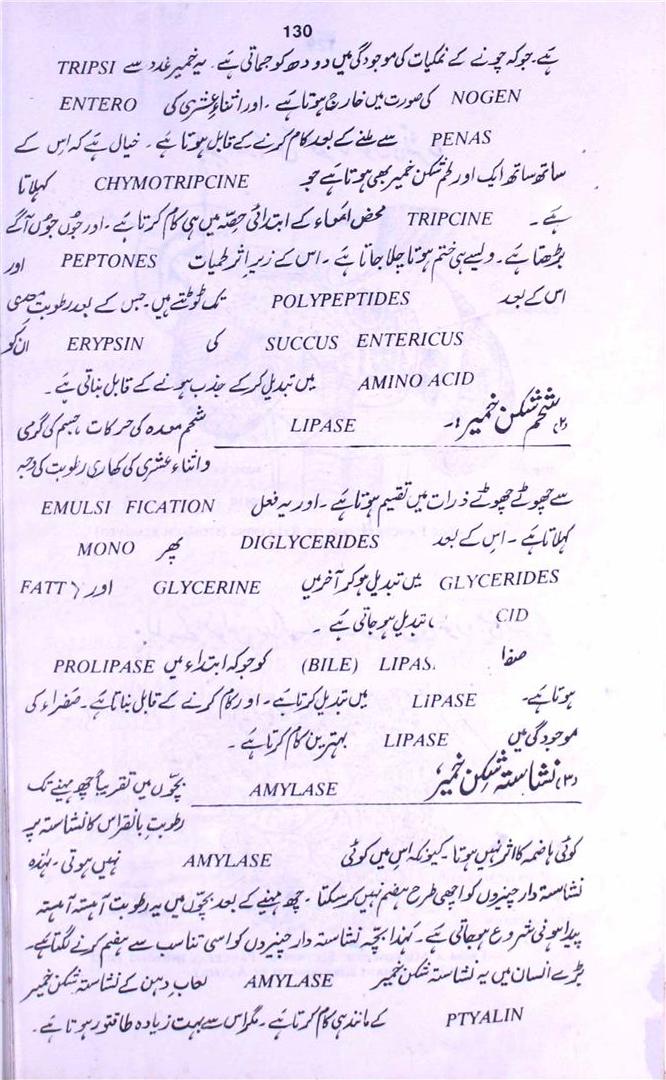 130
ہے۔ جو کہ چونے کے نمکیات کی موجودگی میں دودھ کو جماتی ہے۔ یہ خمیر غدد سے TRIPSI
NOGEN کی صورت میں خارج ہوتا ہے۔ اور اثناءِ عشری کی ENTERO
PENAS سے ملنے کے بعد کام کرنے کے قابل ہوتا ہے۔ خیال ہے کہ اس کے
ساتھ ساتھ ایک اور لحم شکن خمیر بھی ہوتا ہے جو CHYMOTRIPCINE کہلاتا
ہے۔ TRIPCINE محض امعاء کے ابتدائی حصّہ میں ہی کام کرتا ہے۔ اور جُوں جُوں آگے
بڑھتا ہے۔ ویسے ہی ختم ہوتا چلا جاتا ہے۔ اس کے زیرِ اثر لحمیات PEPTONES اور
اس کے بعد POLYPEPTIDES تک ٹوٹتے ہیں۔ جس کے بعد رطوبت معدی
SUCCUS ENTERICUS کی ERYPSIN ان کو
AMINO ACID میں تبدیل کر کے جذب ہونے کے قابل بناتی ہے۔
(۲) شحم شکن خمیر :۔ LIPASE شحم معدہ کی حرکات، جسم کی گرمی
و اثناء عشری کی کھاری رطوبت کی وجہ
سے چھوٹے چھوٹے ذرات میں تقسیم ہوتا ہے۔ اور یہ فعل EMULSI FICATION
کہلاتا ہے۔ اس کے بعد DIGLYCERIDES پھر MONO
GLYCERIDES میں تبدیل ہو کر آخر میں GLYCERINE اور FATTY
CID تبدیل ہو جاتی ہے۔
صفرا (BILE) LIPAS. کو جو کہ ابتداء میں PROLIPASE
ہوتا ہے۔ LiPASE میں تبدیل کرتا ہے۔ اور کام کرنے کے قابل بناتا ہے۔ صفراء کی
موجودگی میں LIPASE بہترین کام کرتا ہے۔
(۳) نشاستہ شکن خمیر، AMYLASE بچّوں میں تقریباً چھ مہینے تک
رطوبت بانقراس کا نشاستہ پر
کوئی ہاضمہ کا اثر نہیں ہوتا۔ کیونکہ اس میں کوئی AMYLASE نہیں ہوتی۔ لہٰذہ
نشاستہ دار چیزوں کو اچھی طرح ہضم نہیں کر سکتا۔ چھ مہینے کے بعد بچّوں میں یہ رطوبت آہستہ آہستہ
پیدا ہونی شروع ہو جاتی ہے۔ لہٰذا بچّہ نشاستہ دار چیزوں کو اسی تناسب سے ہضم کرنے لگتا ہے۔
بڑے انسان میں یہ نشاستہ شکن خمیر AMYLASE لعابِ دہن کے نشاستہ شکن خمیر
PTYALIN کے مانند ہی کام کرتا ہے۔ مگر اس سے بہت زیادہ طاقتور ہوتا ہے۔